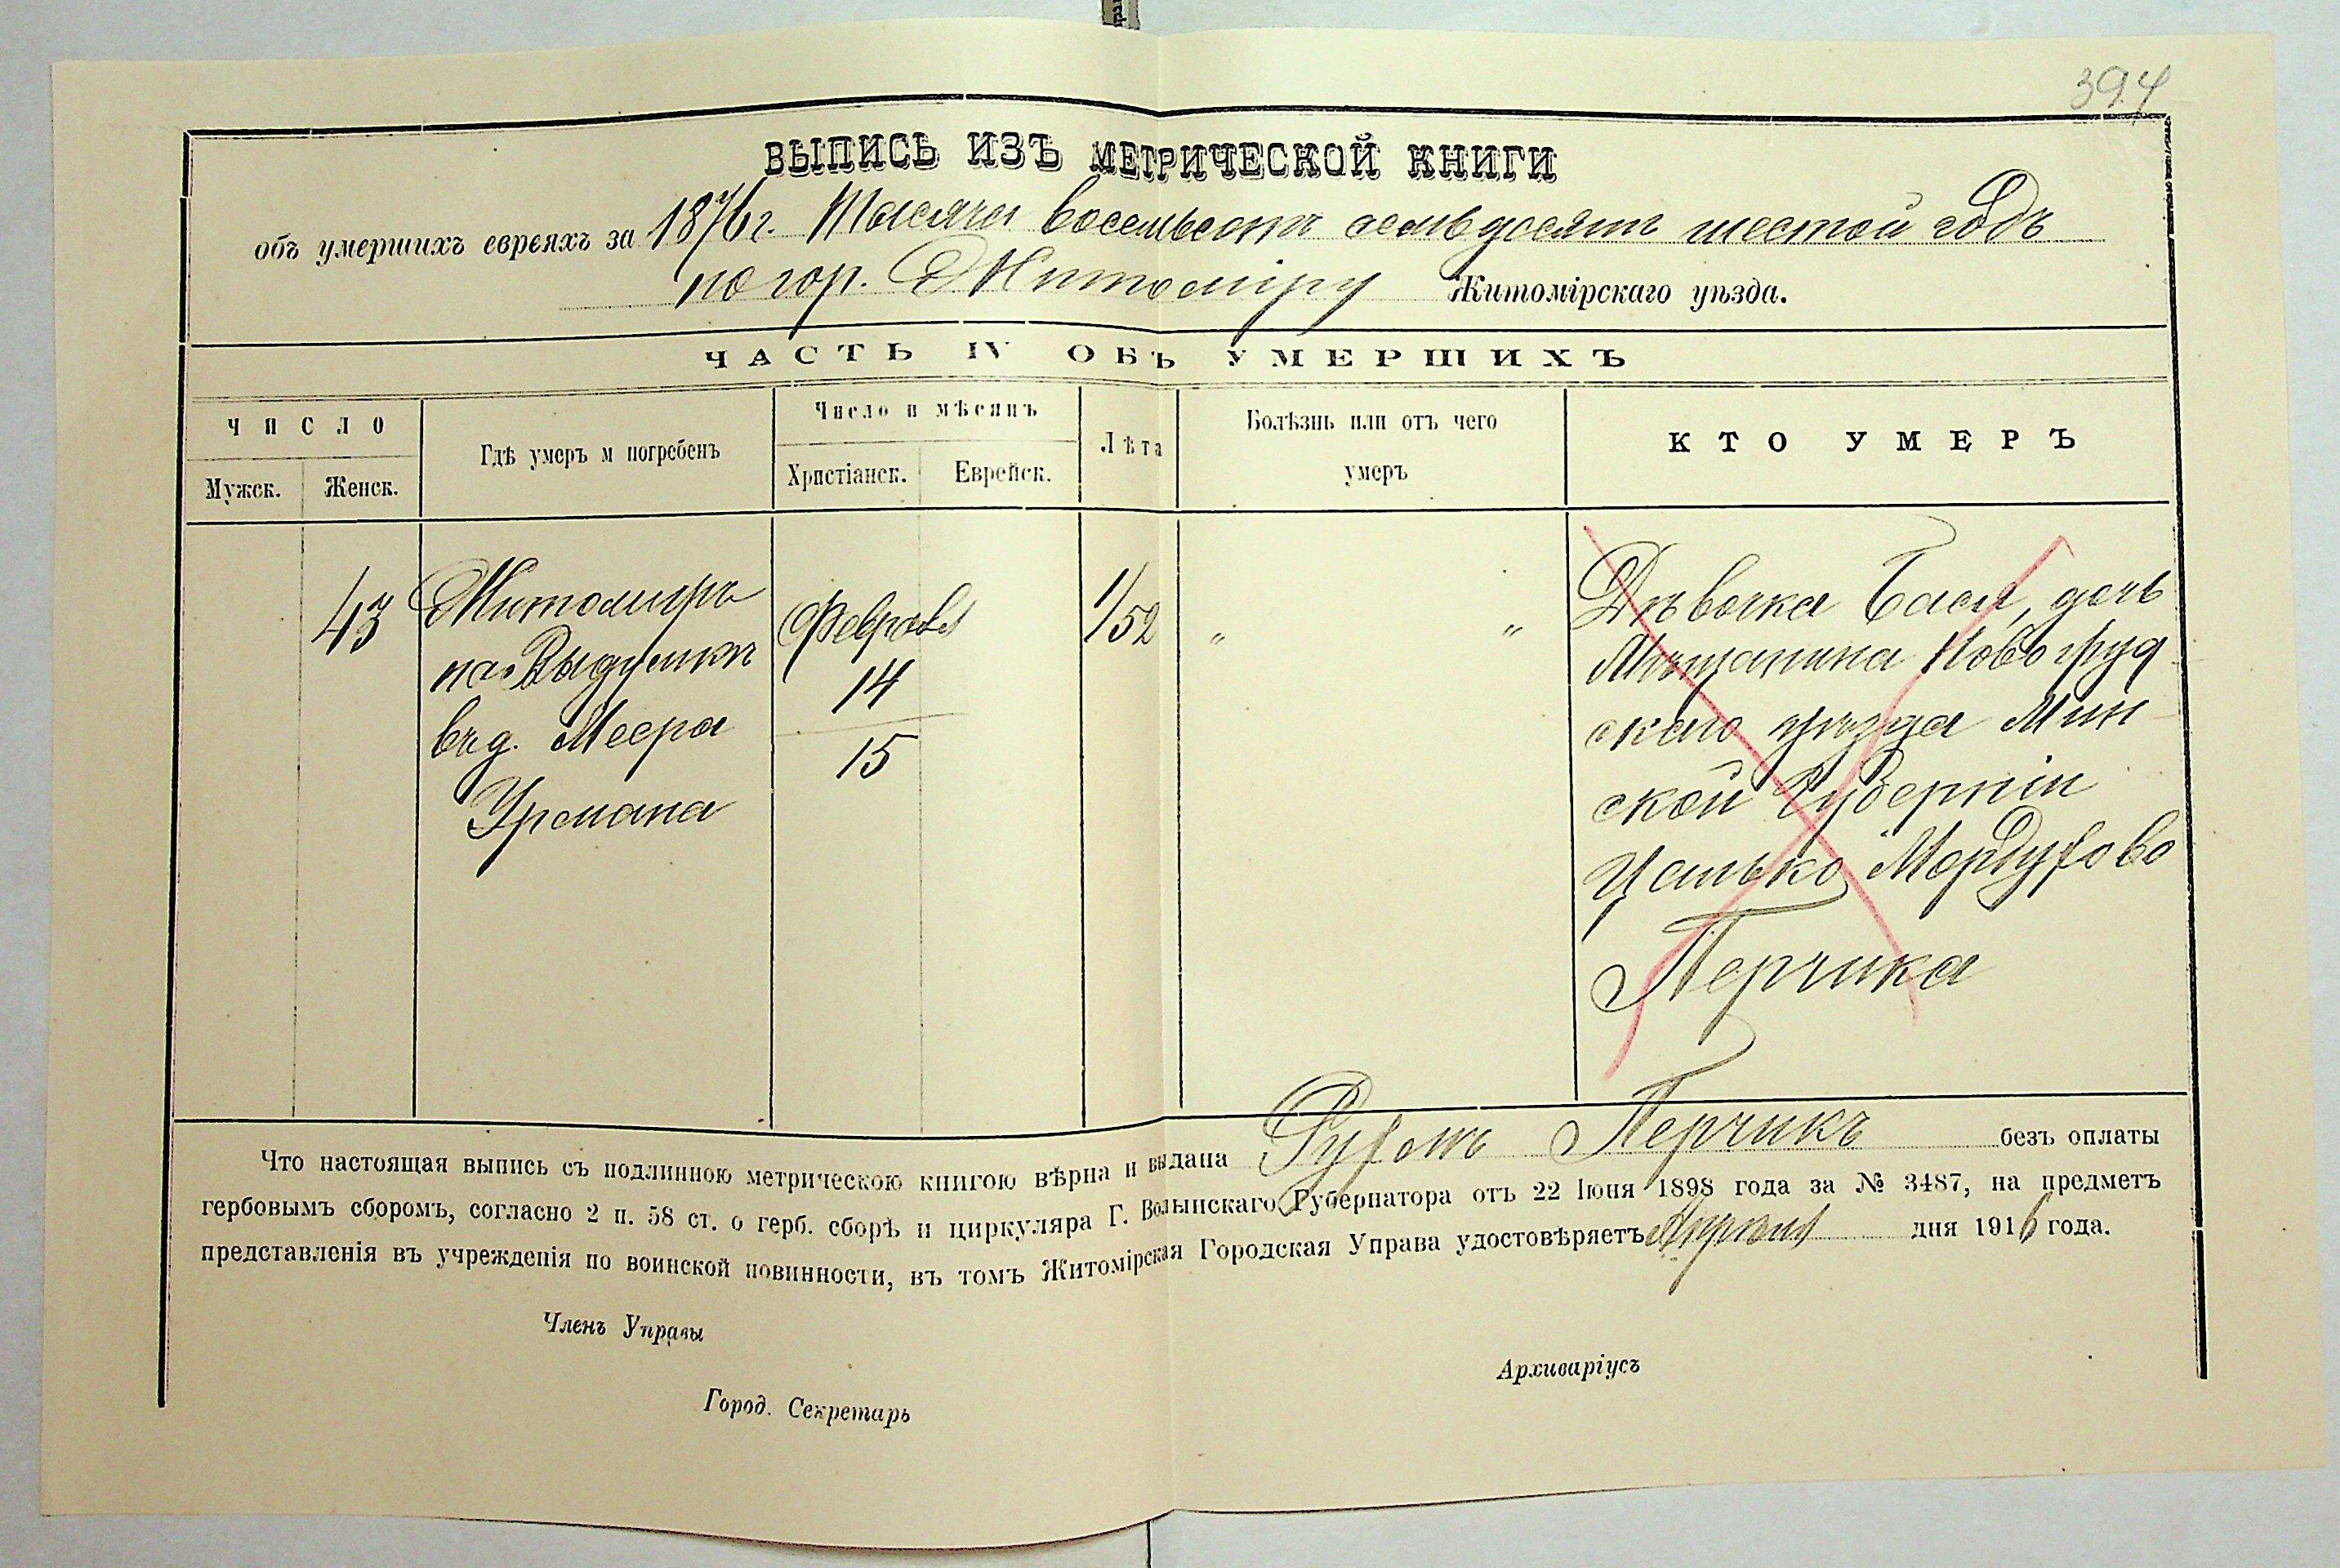 394
ВЫПИСЬ ИЗЪ МЕТРИЧЕСКОЙ КНИГИ
объ умершихъ евреяхъ за 1876 г. Тысяча восемьсотъ семьдесятъ шестой годъ
по гор. Житоміру Житомірскаго уѣзда.
ЧАСТЬ IV ОБЪ УМЕРШИХЪ
ЧИСЛО
Мужск. Женск.
Гдѣ умеръ и погребенъ
Число и мѣсяцъ
Христіанск. Еврейск.
Лѣта
Болѣзнь или отъ чего
умеръ
КТО УМЕРЪ
43
Житомиръ
на Выдумкѣ
въ д. Меера
Урмана
Февраля
14
15
1/52
" "
Дѣвочка Бася, дочь
Мѣщанина Новогруд
скаго уѣзда Мин
ской Губерніи
Мордухово
Перчика
Что настоящая выпись съ подлинною метрическою книгою вѣрна и выдана Рухомъ Перчикъ безъ оплаты
гербовымъ сборомъ, согласно 2 п. 58 ст. о герб. сборѣ и циркуляра Г. Волынскаго Губернатора отъ 22 Іюня 1898 года за № 3487, на предметъ
представленія въ учрежденія по воинской повинности, въ томъ Житомірская Городская Управа удостовѣряетъ Апрѣля дня 1916 года.
Членъ Управы
Город. Секретарь
Архиваріусъ